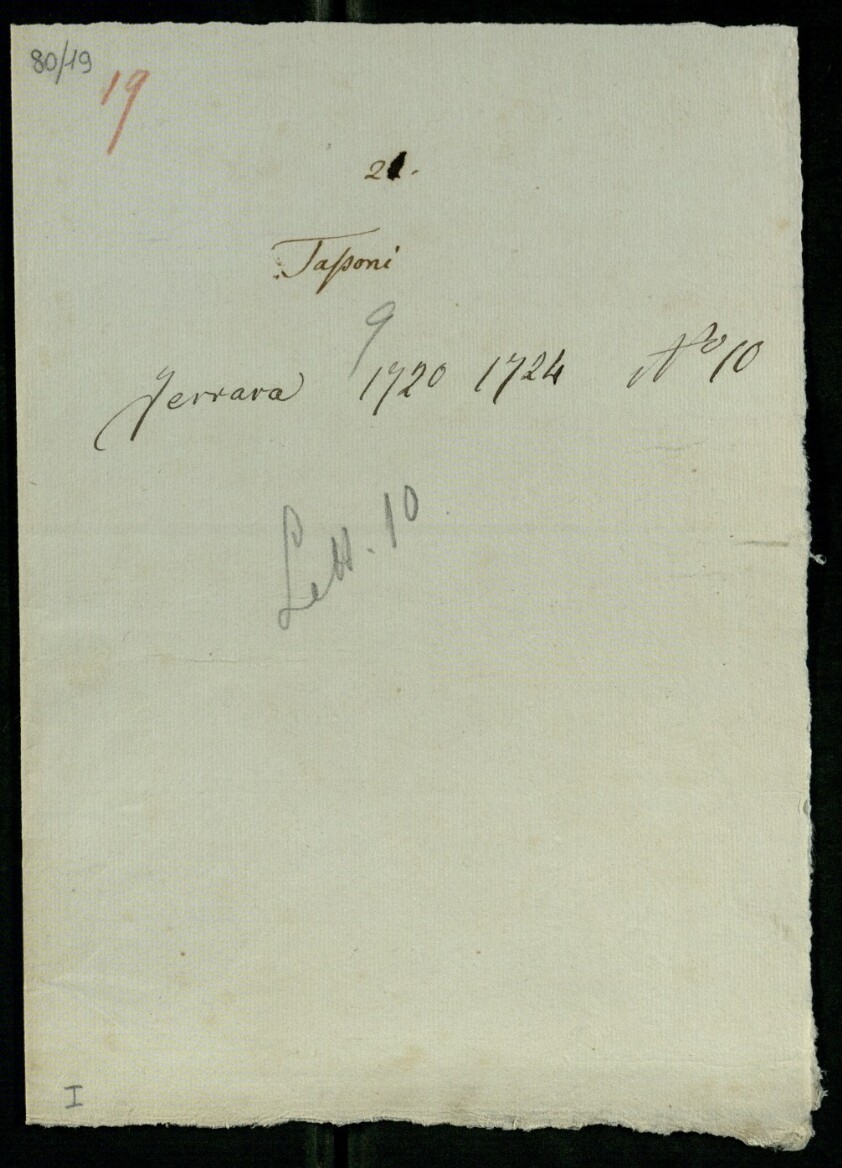 80/19
19
21.
Taſsoni
9
Ferrara 1720 1724 N.º 10
Lett. 10
I